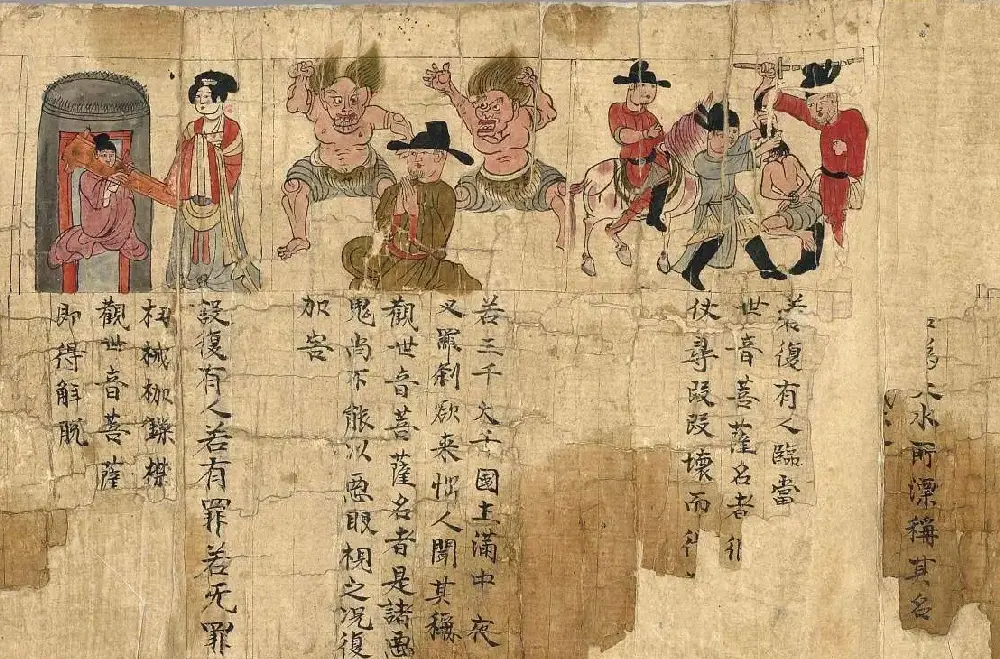 為大水所漂稱其名
若復有人臨當
世音菩薩名者
仗尋段段壞而
若三千大千國土滿中夜
叉羅剎欲来惱人聞其稱
觀世音菩薩名者是諸惡
鬼尚不能以惡眼視之况復
加害
設復有人若有罪若无罪
杻械枷鏁
觀世音菩薩
即得解脫